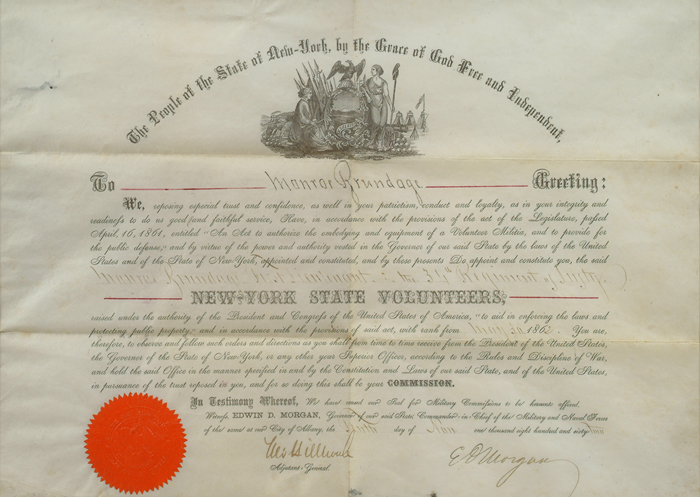 The People of the State of New-York, by the Grace of God Free and Independent,
To Monroe Brundage Greeting:
We, reposing especial trust and confidence, as well in your patriotism, conduct and loyalty, as in your integrity and
readiness to do us good and faithful service, Have, in accordance with the provisions of the act of the Legislature, passed
April, 16, 1861, entitled "An Act to authorize the embodying and equipment of a Volunteer Militia, and to provide for
the public defense," and by virtue of the power and authority vested in the Governor of our said State by the laws of the United
States and of the State of New-York, appointed and constituted, and by these presents Do, appoint and constitute you, the said
Monroe Brundage Lieutenant the 34th Regiment of
NEW-YORK STATE VOLUNTEERS,
raised under the authority of the President and Congress of the United States of America, "to aid in enforcing the laws and
protecting public property," and in accordance with the provisions of said act, with rank from 1862. You are,
therefore, to observe and follow such orders and directions as you shall from time to time receive from the President of the United States,
the Governor of the State of New-York, or any other your Superior Officer, according to the Rules and Discipline of War,
and hold the said Office in the manner specified in and by the Constitution and Laws of our said State, and of the United States,
in pursuance of the trust reposed in you, and for so doing this shall be your COMMISSION.
In Testimony Whereof, We have caused our Seal for Military Commissions to be hereunto affixed.
Witness EDWIN D. MORGAN, Governor of our said State, Commander in Chief of the Military and Naval Forces
of the same at our City of Albany, the day of Nov one thousand eight hundred and sixty two
Thos Hillhouse E D Morgan
Adjutant-General.